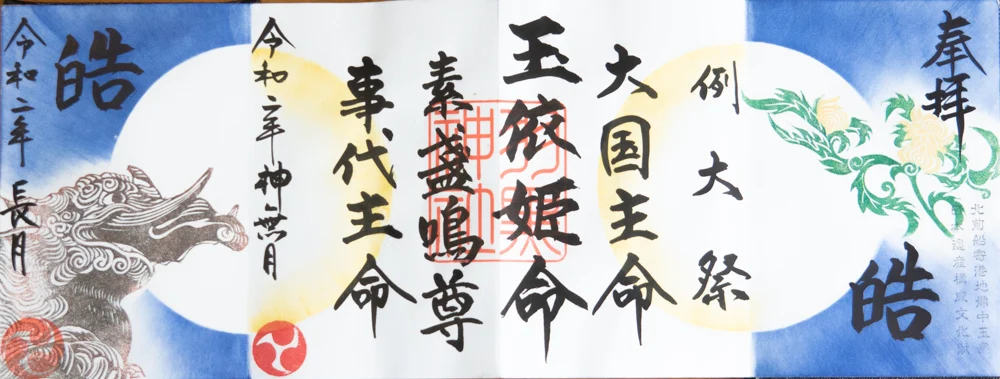 奉拝
皓
北前船寄港地備中玉島
日本遺産構成文化財
例大祭
大国主命
玉依姫命
素盞嗚尊
事代主命
令和二年神無月
皓
令和二年長月